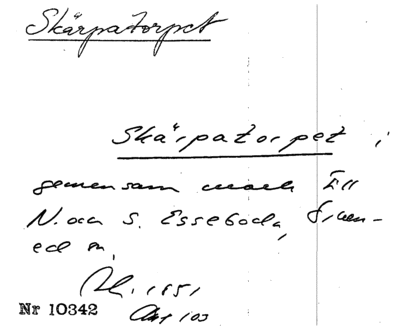 Skärpatorpet
Skärpatorpet i
gemensam mark till
N. och S. Esseboda,
ed sn.
1851
Akt 103
Nr 10342